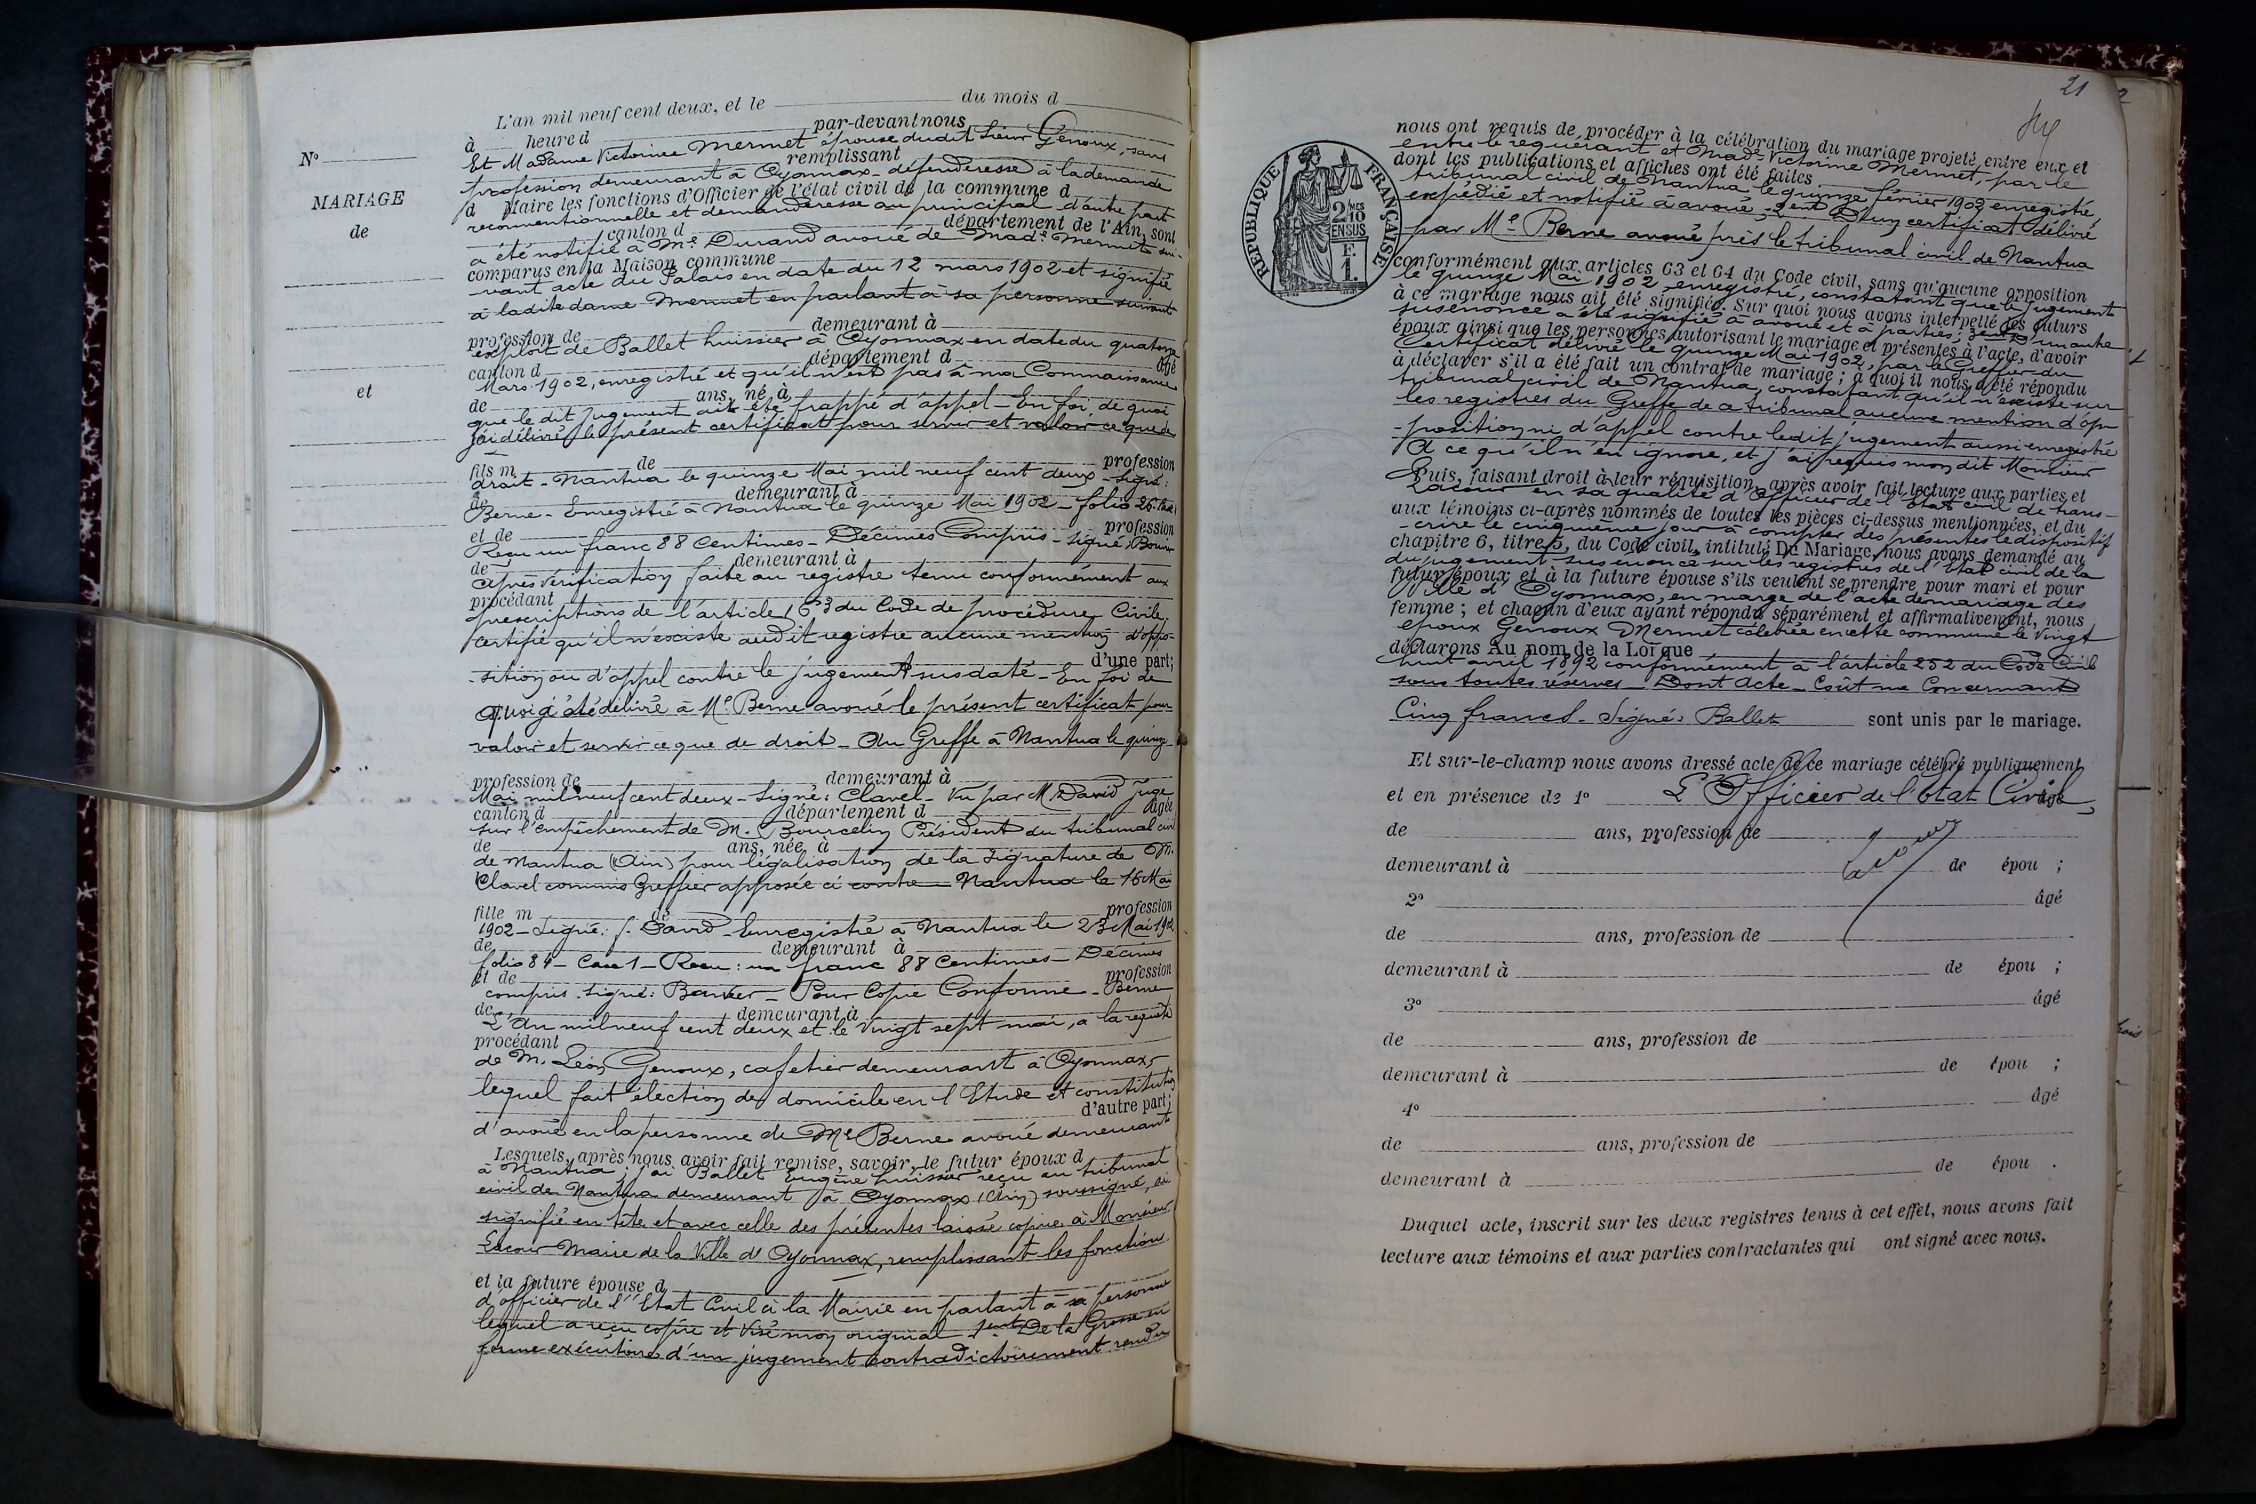 L'an mil neuf cent deux, et le du mois d
à heure d par-devant nous
Et Madame Victorine Mermet épouse dudit sieur Genoux, sans
remplissant
profession demeurant à Oyonnax - défenderesse à la demande
d Maire les fonctions d'Officier de l'état civil de la commune d
reconventionnelle et demanderesse au principal d'autre part
canton d département de l'Ain, sont
a été notifié à Me Durand avoué de Made Mermet sui-
comparus en la Maison commune
vant acte du Palais en date du 12 mars 1902 et signifié
à ladite dame Mermet en parlant à sa personne suivant
profession de demeurant à
exploit de Ballet huissier à Oyonnax en date du quatorze
canton d département d âgé
Mars 1902, enregistré et qu'il n'est pas à ma Connaissance
de ans, né à
que le dit jugement ait été frappé d'appel - En foi de quoi
j'ai délivré le présent certificat pour servir et valoir ce que de
fils m de profession
droit - Nantua le quinze Mai mil neuf cent deux - Signé:
de demeurant à
Berne - Enregistré à Nantua le quinze Mai 1902 - folio 26
et de profession
Reçu un franc 88 Centimes - Décimes Compris - Signé:
de demeurant à
Après vérification faite au registre tenu conformément aux
procédant
prescriptions de l'article 163 du Code de procédure Civile,
certifie qu'il n'existe audit registre aucune mention d'oppo-
d'une part;
-sition ou d'appel contre le jugement susdaté - En foi de
quoi j'ai délivré à Me Berne avoué le présent certificat pour
valoir et servir ce que de droit - Au Greffe à Nantua le quinze
profession de demeurant à
Mai mil neuf cent deux - Signé: Clavel - Vu par M. David juge
canton d département d âgée
sur l'empêchement de M. Bourcelin Président du tribunal civil
de ans, née à
de Nantua (Ain) pour légalisation de la signature de M.
Clavel commis Greffier apposée ci contre - Nantua le 16 Mai
fille m de profession
1902 - Signé: J. David - Enregistré à Nantua le 23 Mai 1902
de demeurant à
folio 84 - Case 1 - Reçu: un franc 88 Centimes - Décimes
et de profession
compris. Signé: - Pour Copie Conforme - Berne
de demeurant à
L'An mil neuf cent deux et le Vingt sept mai, a la requête
procédant
de M. Léon Genoux, cafetier demeurant à Oyonnax,
lequel fait élection de domicile en l'Etude et constitution
d'autre part;
d'avoué en la personne de Me Berne avoué demeurant
Lesquels, après nous avoir fait remise, savoir, le futur époux d
à Nantua; j'ai Ballet Eugène huissier reçu au tribunal
civil de Nantua demeurant à Oyonnax (Ain) soussigné, ai
signifié en tête et avec celle des présentes laissé copie à Monsieur
Lacour Maire de la Ville d'Oyonnax, remplissant les fonctions
et la future épouse d
d'officier de l'Etat Civil à la Mairie en parlant à sa personne
lequel a reçu copie et visé mon original - 1ent De la Grosse en
forme exécutoire d'un jugement contradictoirement rendu
No
MARIAGE
de
et
21
nous ont requis de procéder à la célébration du mariage projeté entre eux et
entre le requérant et Made Victorine Mermet, par le
dont les publications et affiches ont été faites
tribunal civil de Nantua le quinze février 1902 enregistré,
expédié et notifié à avoué; 2ent D'un certificat délivré
par Me Berne avoué près le tribunal civil de Nantua
conformément aux articles 63 et 64 du Code civil, sans qu'aucune opposition
le quinze Mai 1902, enregistré, constatant que le jugement
à ce mariage nous ait été signifiée. Sur quoi nous avons interpellé les futurs
susénoncé a été signifié à avoué et à parties; un autre
époux ainsi que les personnes autorisant le mariage et présentes à l'acte, d'avoir
Certificat délivré le quinze Mai 1902, par le Greffier du
à déclarer s'il a été fait un contrat de mariage; à quoi il nous a été répondu
tribunal civil de Nantua, constatant qu'il n'existe sur
les registres du Greffe de ce tribunal aucune mention d'op-
-position ni d'appel contre ledit jugement aussi enregistré
A ce qu'il n'en ignore, et j'ai requis mon dit Monsieur
Puis, faisant droit à leur réquisition, après avoir fait lecture aux parties et
Lacour en sa qualité d'Officier de l'Etat civil de trans-
aux témoins ci-après nommés de toutes les pièces ci-dessus mentionnées, et du
-crire le cinquième jour à compter des présentes le dispositif
chapitre 6, titre 5, du Code civil, intitulé Du Mariage, nous avons demandé au
du jugement susénoncé sur les registres de l'Etat civil de la
futur époux et à la future épouse s'ils veulent se prendre pour mari et pour
Ville d'Oyonnax, en marge de l'acte de mariage des
femme; et chacun d'eux ayant répondu séparément et affirmativement, nous
époux Genoux Mermet célébrée en cette commune le Vingt
déclarons Au nom de la Loi que
huit avril 1892 conformément à l'article 252 du Code Civil
sous toutes réserves - Dont Acte - Coût me Concernant
Cinq francs. Signé: Ballet sont unis par le mariage.
Et sur-le-champ nous avons dressé acte de ce mariage célébré publiquement
et en présence de 1° L'Officier de l'Etat Civil, âgé
de ans, profession de
Lacour
demeurant à de épou ;
2° âgé
de ans, profession de
demeurant à de épou ;
3° âgé
de ans, profession de
demeurant à de épou ;
4° âgé
de ans, profession de
demeurant à de épou .
Duquel acte, inscrit sur les deux registres tenus à cet effet, nous avons fait
lecture aux témoins et aux parties contractantes qui ont signé avec nous.
RÉPUBLIQUE FRANÇAISE
2 MES
10
EN SUS
F.
1.